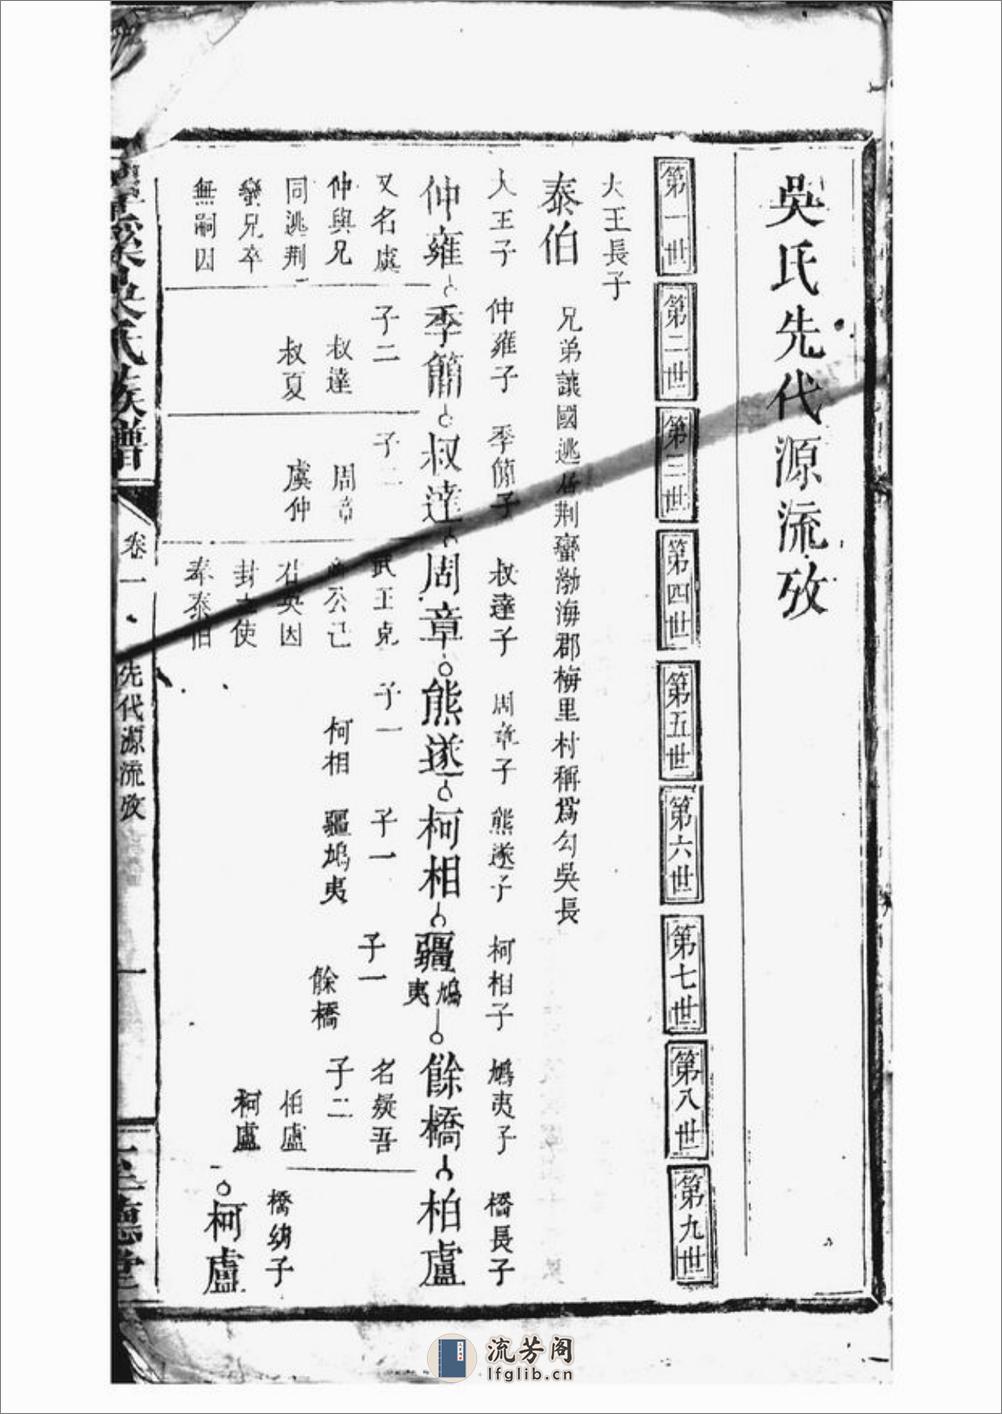 吳氏先代源流攷
第一世
第二世
第三世
第四世
第五世
第六世
第七世
第八世
第九世
大王長子
泰伯
兄弟讓國逃居荆蠻渤海郡梅里村稱爲勾吳長
仲雍子
季簡子
叔達子
周章子
熊遂子
柯相子
鳩夷子
橋長子
仲雍
季簡
叔達
周章
熊遂
柯相
疆鳩夷
餘橋
柏盧
又名虞
仲與兄
同逃荆
蠻兄卒
無嗣因
子二
叔達
叔夏
子二
周章
虞仲
武王克
封使
奉泰伯
子一
柯相
子一
疆鳩夷
子一
餘橋
名疑吾
子二
柏盧
柯盧
橋納子
柯盧
吳氏族譜
卷一
先代源流攷
一
至德堂
流芳阁
lfglib.cn